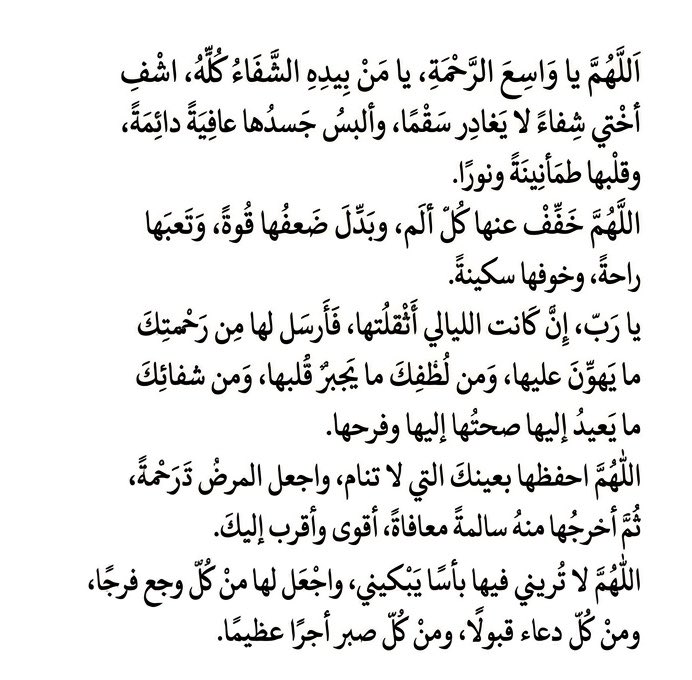 اَللَّهُمَّ يا وَاسِعَ الرَّحْمَةِ، يا مَنْ بِيدِهِ الشَّفَاءُ كُلِّهُ، اشْفِ
أخْتي شِفاءً لا يَغادِر سَقْمًا، وألبسُ جَسدُها عافِيَةً دائِمَةً،
وقلْبها طمَأنِينَةً ونورًا.
اللَّهُمَّ خَفِّفْ عنها كُلّ ألَم، وبَدِّلَ ضَعفُها قُوةً، وَتَعبَها
راحةً، وخوفها سكينةً.
يا رَبّ، إِنَّ كَانت الليالي أَثْقلُتها، فَأَرسَل لها مِن رَحْمتِكَ
ما يَهوِّنَ عليها، وَمن لُطْفِكَ ما يَجبرٌ قُلبها، وَمن شفائِكَ
ما يَعيدُ إليها صحتُها إليها وفرحها.
اللهُمَّ احفظها بعينكَ التي لا تنام، واجعل المرضُ تَرَحْمةً،
ثُمَّ أخرجُها منهُ سالمةً معافاةً، أقوى وأقرب إليكَ.
اللهُمَّ لا تُريني فيها بأسًا يَبْكيني، واجْعَل لها منْ كُلّ وجع فرجًا،
ومنْ كُلّ دعاء قبولًا، ومنْ كُلّ صبر أجرًا عظيمًا.